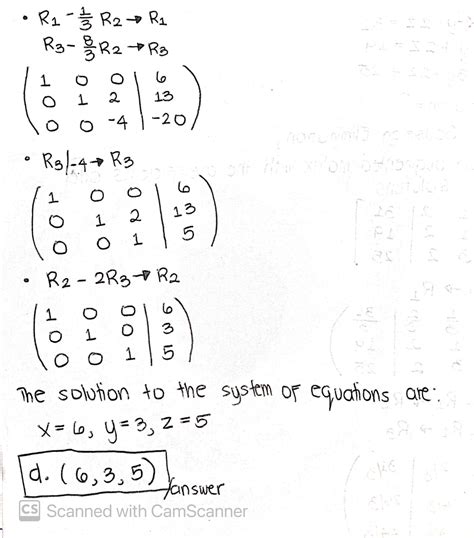 • R₁ - 1/3 R₂ → R₁
R₃ - 8/3 R₂ → R₃
1 0 0 | 6
0 1 2 | 13
0 0 -4 | -20
• R₃/-4 → R₃
1 0 0 | 6
0 1 2 | 13
0 0 1 | 5
• R₂ - 2R₃ → R₂
1 0 0 | 6
0 1 0 | 3
0 0 1 | 5
The solution to the system of equations are:
x=6, y=3, z=5
d. (6,3,5) answer
CS Scanned with CamScanner